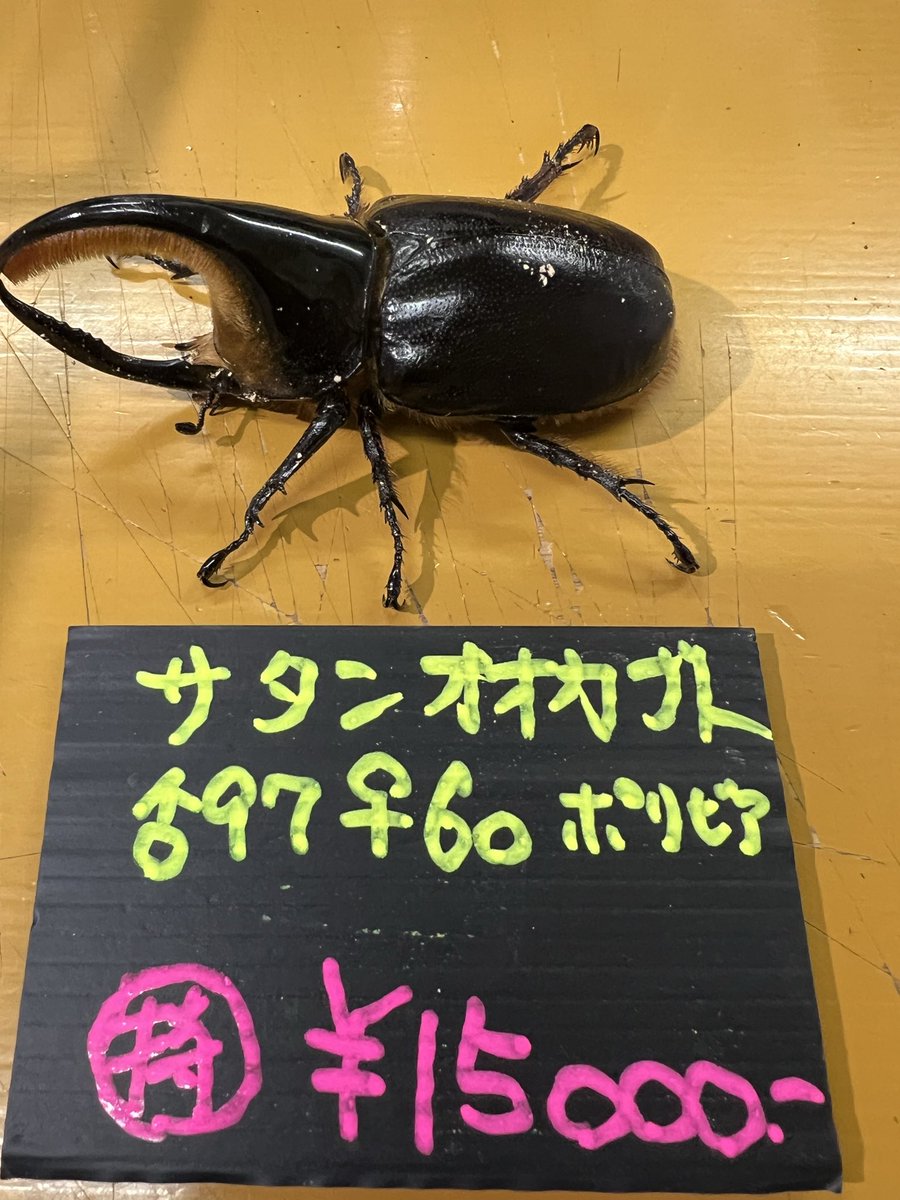 サタンオオカブト
♂97 ♀60 ボリビア
㊕ ¥15000.-